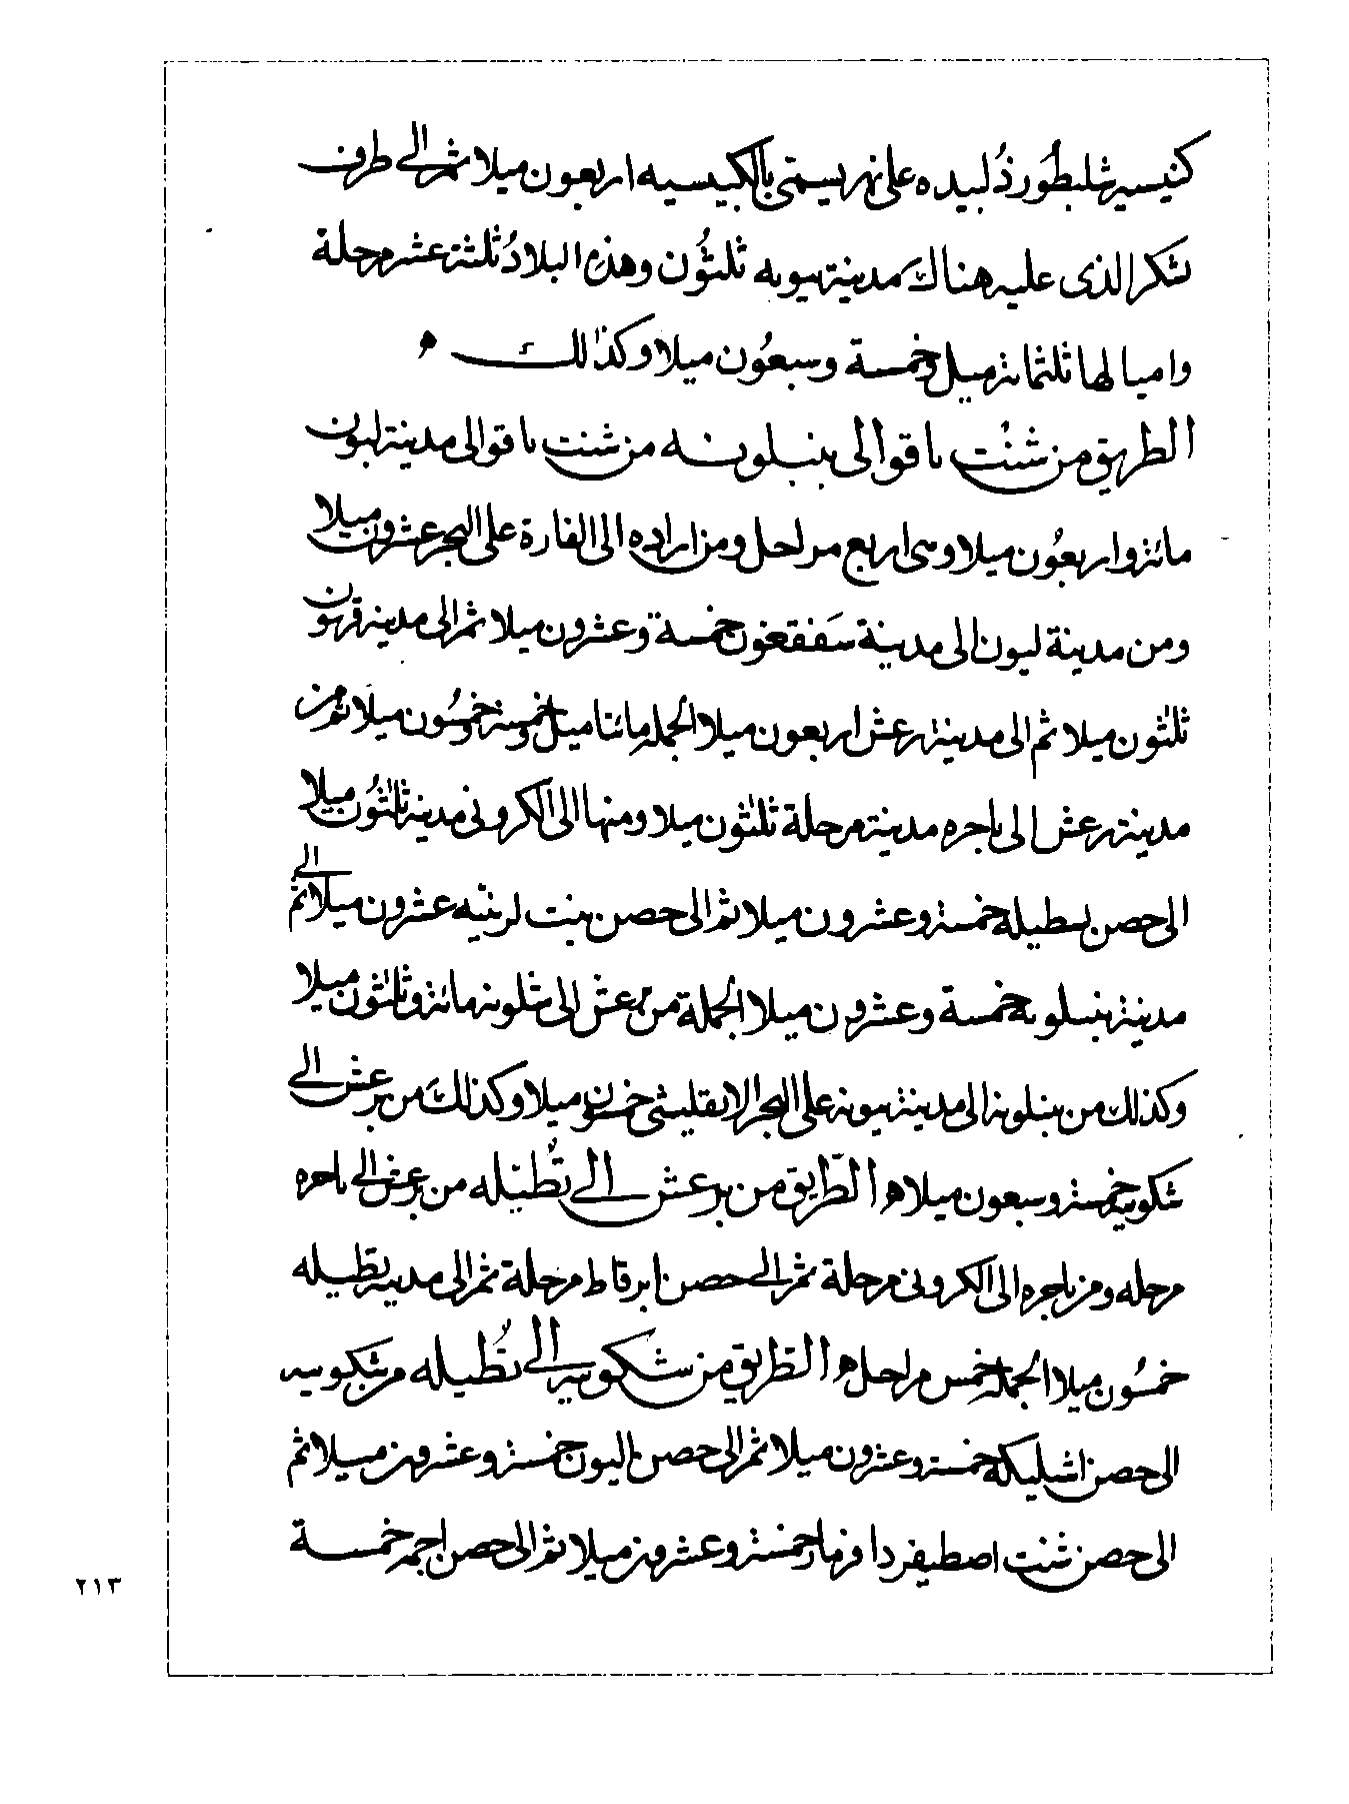 كنيسة شلبطور ذلبيده على نهر يسمى بالكبيسيه اربعون ميلا ثم الى طرف
شكر الذى عليه هناك مدينة بيونه ثلثون وهذه البلاد ثلثة عشر مرحلة
واميالها ثلثمائة ميل وخمسة وسبعون ميلا وكذلك ه
الطريق من شنت ياقو الى بنبلونه من شنت ياقو الى مدينة ليون
مائة واربعون ميلا وهى اربع مراحل ومن اراده الى الفارة على البحر عشرون ميلا
ومن مدينة ليون الى مدينة سفقغون خمسة وعشرون ميلا ثم الى مدينة قريون
ثلثون ميلا ثم الى مدينة برعش اربعون ميلا الجملة مائتا ميل وخمسة وخمسون ميلا ثم من
مدينة برعش الى ناجره مدينة مرحلة ثلثون ميلا ومنها الى الكرونى مدينة ثلثون ميلا
الى حصن بسطيله خمسة وعشرون ميلا ثم الى حصن بنت لرينيه عشرون ميلا ثم الى
مدينة بنبلونه خمسة وعشرون ميلا الجملة من برعش الى بنبلونه مائة وثلثون ميلا
وكذلك من بنبلونه الى مدينة بيونه على البحر الانقليشى خمسون ميلا وكذلك من برعش الى
شكوبيه خمسة وسبعون ميلا ه الطريق من برعش الى تطيله من برعش الى ناجره
مرحله ومن ناجره الى الكرونى مرحلة ثم الى حصن ابرقاط مرحلة ثم الى مدينة تطيله
خمسون ميلا الجملة خمس مراحل ه الطريق من شكوبيه الى تطيله من شكوبيه
الى حصن اشليكه خمسة وعشرون ميلا ثم الى حصن باليون خمسة وعشرون ميلا ثم
الى حصن شنت اصطيفر دا غرماز خمسة وعشرون ميلا ثم الى حصن اجمر خمسة
٢١٣